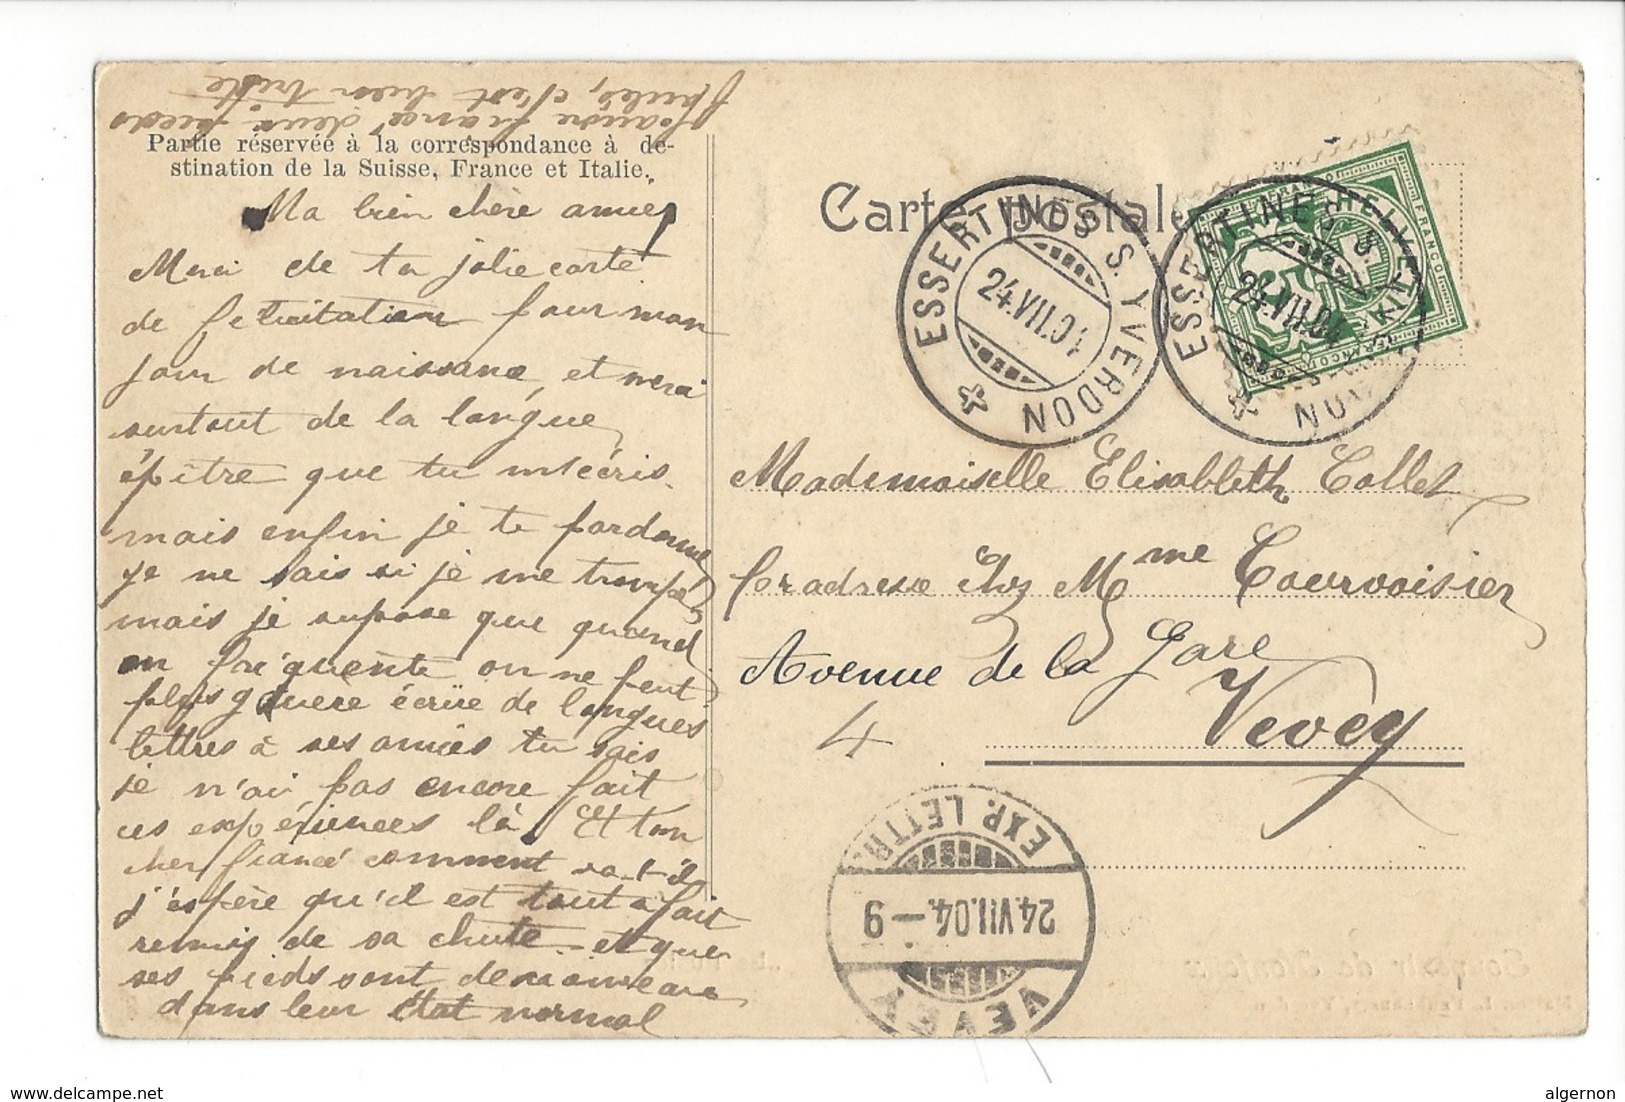 Pauvre fiancé deux pieds
foulés, c'est bien triste
Partie réservée à la correspondance à de-
stination de la Suisse, France et Italie.
Ma bien chère amie,
Merci de ta jolie carte
de felicitation pour mon
jour de naissance, et merci
surtout de la longue
épître que tu m'écris.
mais enfin je te pardonne
je ne sais si je me trompe
mais je suppose que quand
on fréquente on ne peut
plus guère écrire de longues
lettres à ses amies tu sais
je n'ai pas encore fait
ces expériences là. Et ton
cher fiancé comment va-t-il
j'espère qu'il est tout a fait
remis de sa chute et que
ses pieds sont de nouveau
dans leur état normal
Carte postale
ESSERTINES S. YVERDON
24.VII.04
ESSERTINES S. YVERDON
24.VII.04
FRANCO HELVETIA
5
Mademoiselle Elisabbeth Collet
adresse chez Mme Courvoisier
Avenue de la Gare
Vevey
4
VEVEY
24.VII.04.-9
EXP. LETTR.
Souvenir de
www.delcampe.net
algernon